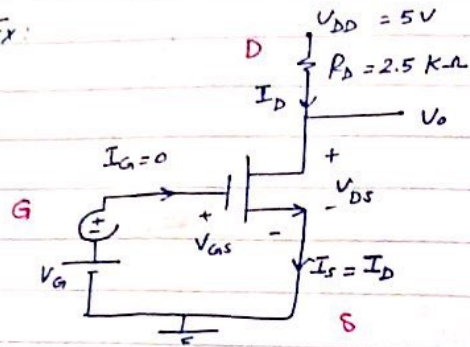 Ex:
V_DD = 5V
D
R_D = 2.5 K-Ω
I_D
V_o
I_G=0
+
G
+
V_DS
-
V_GS
-
V_G
I_S = I_D
S